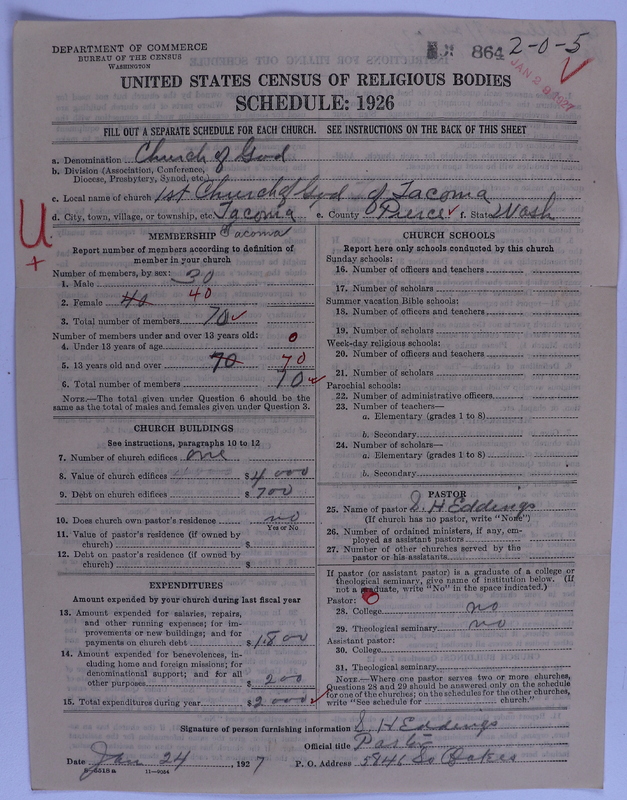 DEPARTMENT OF COMMERCE
BUREAU OF THE CENSUS
WASHINGTON
864 2-0-5
JAN 28 1927
UNITED STATES CENSUS OF RELIGIOUS BODIES
SCHEDULE: 1926
FILL OUT A SEPARATE SCHEDULE FOR EACH CHURCH. SEE INSTRUCTIONS ON THE BACK OF THIS SHEET
a. Denomination Church of God
b. Division (Association, Conference,
Diocese, Presbytery, Synod, etc.)
c. Local name of church 1st Church of God of Tacoma
d. City, town, village, or township, etc. Tacoma e. County Pierce f. State Wash
U
+
MEMBERSHIP Tacoma
Report number of members according to definition of
member in your church
Number of members, by sex:
1. Male 30
2. Female 40 40
3. Total number of members 70
Number of members under and over 13 years old:
4. Under 13 years of age 0
5. 13 years old and over 70 70
6. Total number of members 70
NOTE.—The total given under Question 6 should be
same as the total of males and females given under Question 3.
CHURCH BUILDINGS
See instructions, paragraphs 10 to 12
7. Number of church edifices one
8. Value of church edifices $4000
9. Debt on church edifices $700
10. Does church own pastor's residence no
Yes or No
11. Value of pastor's residence (if owned by
church) $
12. Debt on pastor's residence (if owned by
church) $
EXPENDITURES
Amount expended by your church during last fiscal year
13. Amount expended for salaries, repairs,
and other running expenses; for im-
provements or new buildings; and for
payments on church debt $1800
14. Amount expended for benevolences, in-
cluding home and foreign missions; for
denominational support; and for all
other purposes $200
15. Total expenditures during year $2000
CHURCH SCHOOLS
Report here only schools conducted by this church
Sunday schools:
16. Number of officers and teachers
17. Number of scholars
Summer vacation Bible schools:
18. Number of officers and teachers
19. Number of scholars
Week-day religious schools:
20. Number of officers and teachers
21. Number of scholars
Parochial schools:
22. Number of administrative officers
23. Number of teachers—
a. Elementary (grades 1 to 8)
b. Secondary
24. Number of scholars—
a. Elementary (grades 1 to 8)
b. Secondary
PASTOR
25. Name of pastor S H Eddings
(If church has no pastor, write "None")
26. Number of ordained ministers, if any, em-
ployed as assistant pastors
27. Number of other churches served by the
pastor or his assistants
If pastor (or assistant pastor) is a graduate of a college or
theological seminary, give name of institution below. (If
not a graduate, write "No" in the space indicated.)
Pastor:
28. College no
29. Theological seminary no
Assistant pastor:
30. College
31. Theological seminary
NOTE.—Where one pastor serves two or more churches,
Questions 28 and 29 should be answered only on the schedule
for one of the churches; on the schedules for the other churches,
write "See schedule for church."
Signature of person furnishing information S H Eddings
Official title Pastor
Date Jan 24, 1927 P. O. Address 5846 So Oakes
8-5518a 11-9054